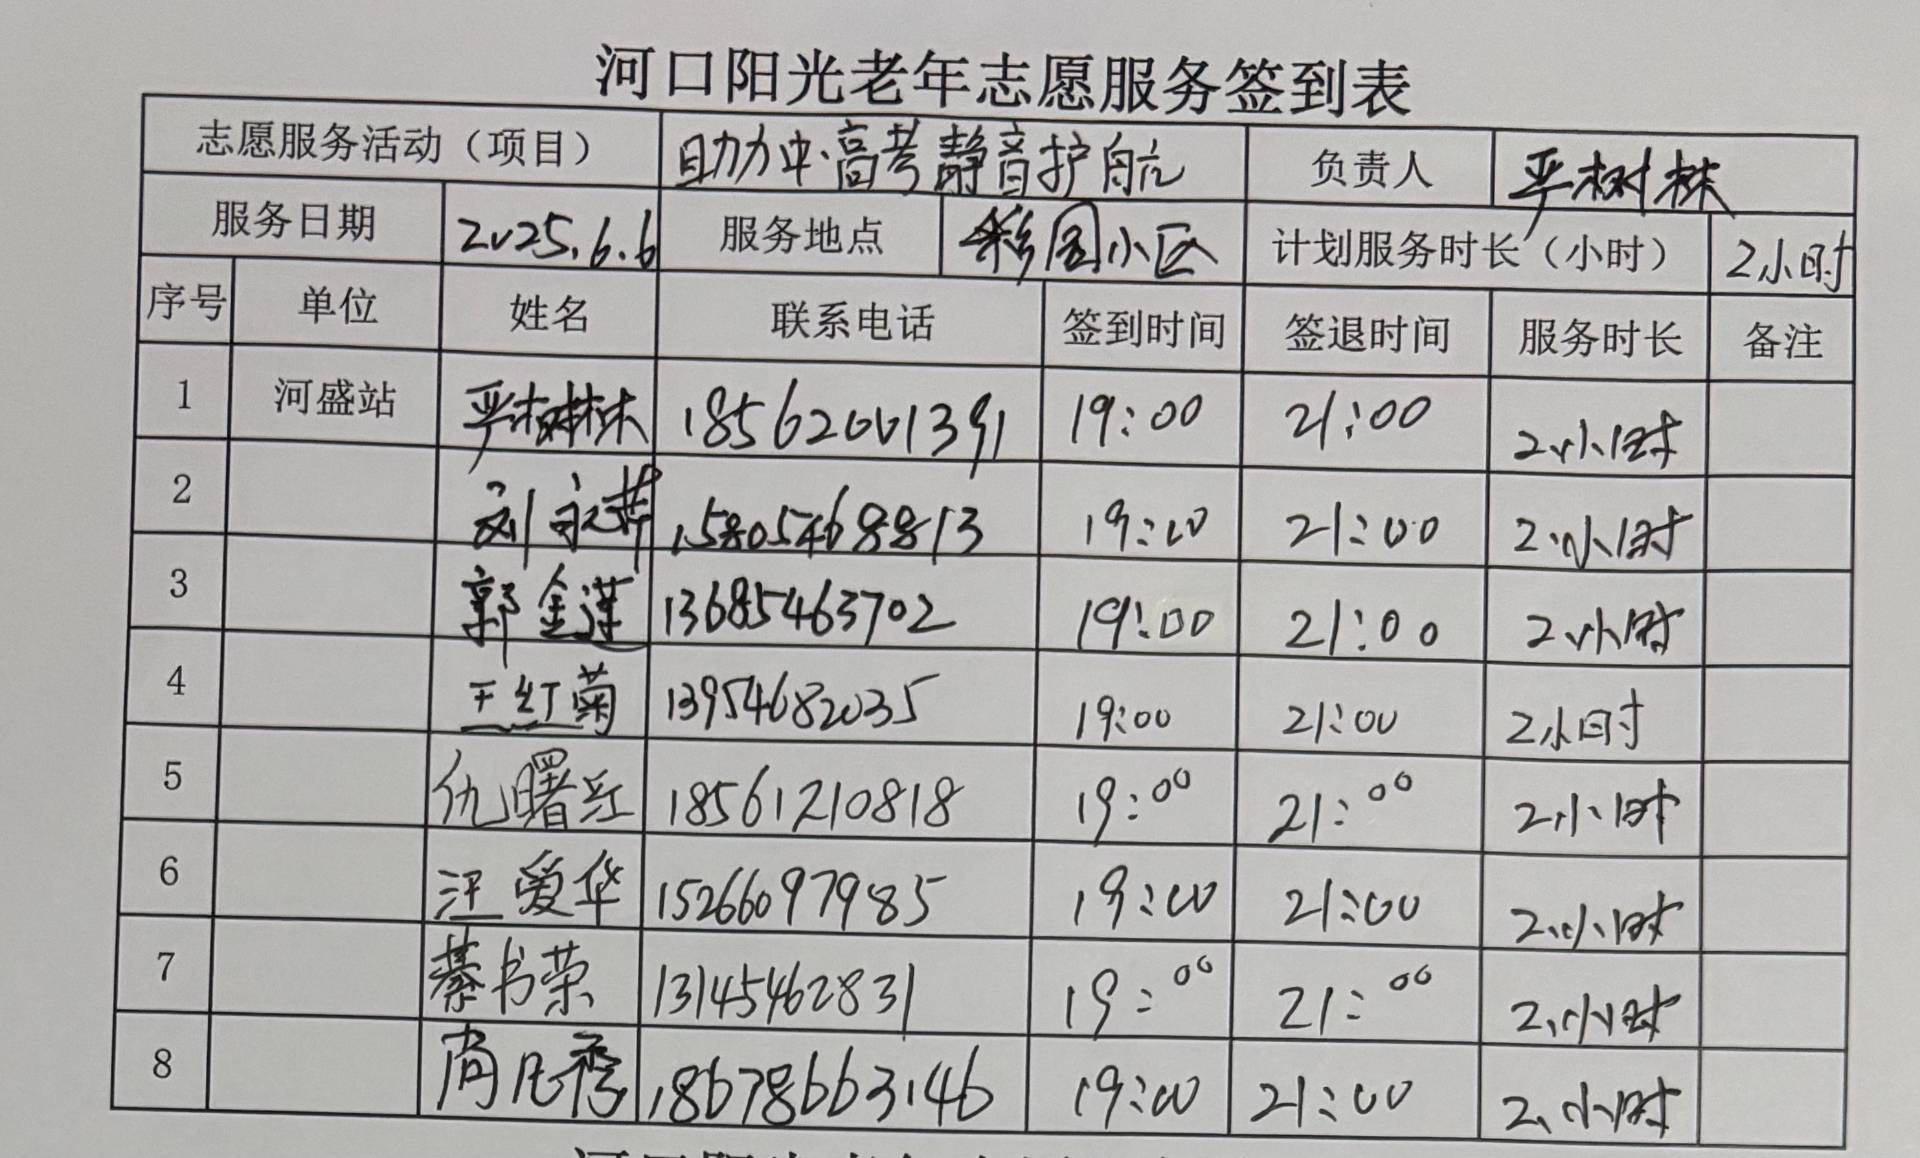 河口阳光老年志愿服务签到表
志愿服务活动（项目） 助力中.高考静音护航 负责人 严树林
服务日期 2025.6.6 服务地点 彩园小区 计划服务时长（小时） 2小时
序号 单位 姓名 联系电话 签到时间 签退时间 服务时长 备注
1 河盛站 严树林 18562001391 19:00 21:00 2小时
2 刘永萍 15805468813 19:00 21:00 2小时
3 郭金莲 13685463702 19:00 21:00 2小时
4 王红菊 13954682035 19:00 21:00 2小时
5 仇曙红 18561210818 19:00 21:00 2小时
6 汪爱华 15266097985 19:00 21:00 2小时
7 綦书荣 13145462831 19:00 21:00 2小时
8 18678663146 19:00 21:00 2小时